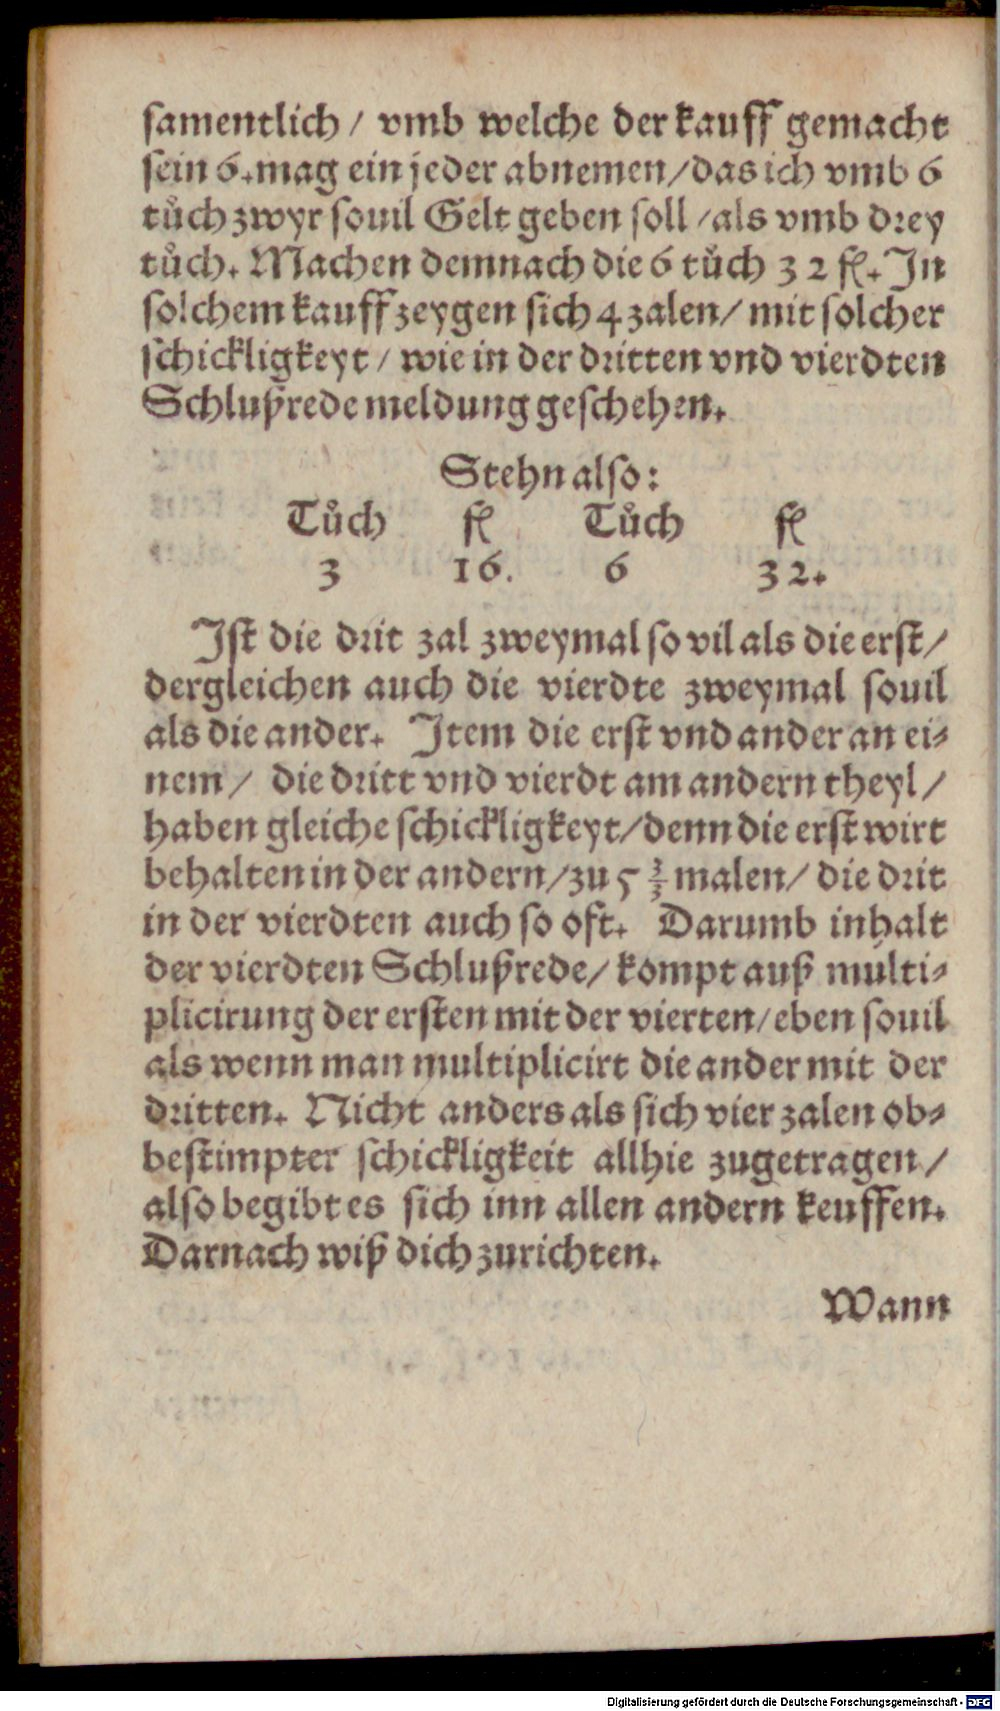 samentlich / vmb welche der kauff gemacht
sein 6. mag ein jeder abnemen / das ich vmb 6
tuͦch zwyr souil Gelt geben soll / als vmb drey
tuͦch. Machen demnach die 6 tuͦch 32 fl. In
solchem kauff zeygen sich 4 zalen / mit solcher
schickligkeyt / wie in der dritten vnd vierdten
Schlußrede meldung geschehen.
Stehn also:
Tuͦch fl Tuͦch fl
3 16. 6 32.
Ist die drit zal zweymal so vil als die erst /
dergleichen auch die vierdte zweymal souil
als die ander. Item die erst vnd ander an ei-
nem / die dritt vnd vierdt am andern theyl /
haben gleiche schickligkeyt / denn die erst wirt
behalten in der andern / zu 5 1/3 malen / die drit
in der vierdten auch so oft. Darumb inhalt
der vierdten Schlußrede / kompt auß multi-
plicirung der ersten mit der vierten / eben souil
als wenn man multiplicirt die ander mit der
dritten. Nicht anders als sich vier zalen ob-
bestimpter schickligkeit allhie zugetragen /
also begibt es sich inn allen andern keuffen.
Darnach wiß dich zurichten.
Wann
Digitalisierung gefördert durch die Deutsche Forschungsgemeinschaft - DFG